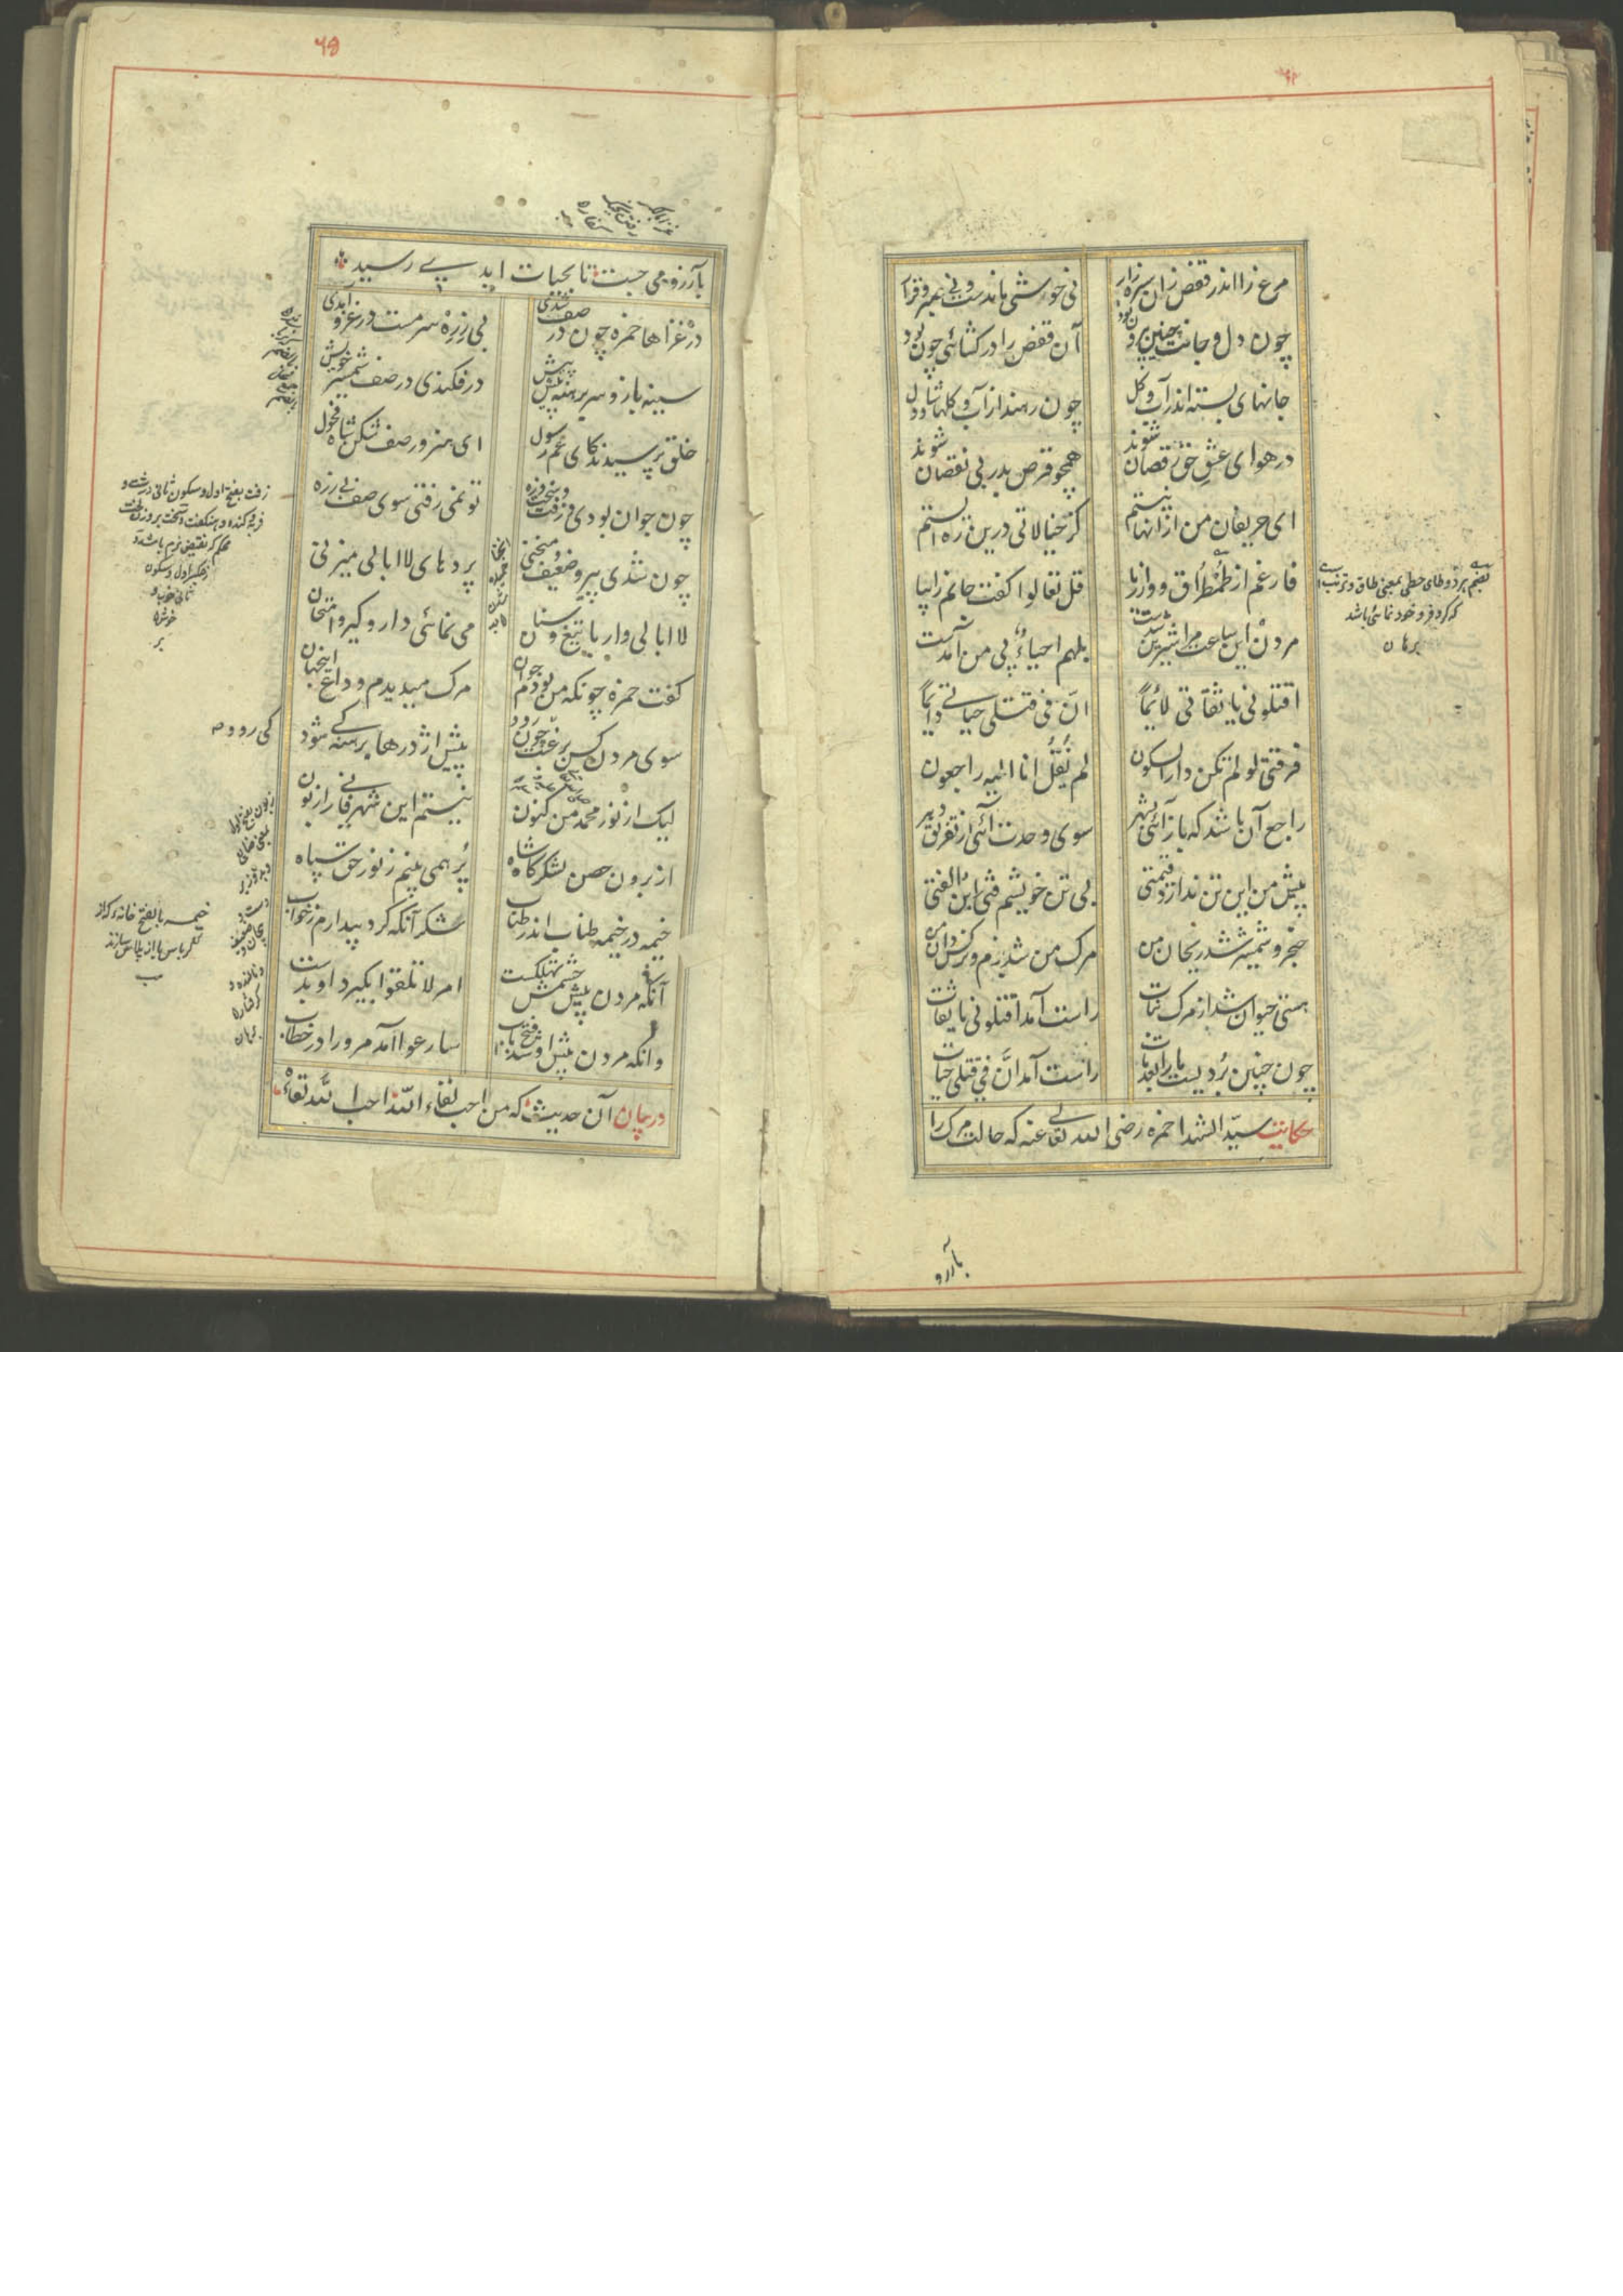 مرغ را اندر قفص زان سبزه زار نی خورش ماندست و نی صبر و قرار
چون دل و جانت چنین بیرون بود آن قفص را در کشائی چون بود
جانهای بسته اندر آب و کل چون رهند از آب و کلها شاد دل
در هوای عشق حق رقصان شوند همچو قرص بدر بی نقصان شوند
ای حریفان من از آنها نیستم کز خیالاتی درین ره ایستم
فارغم از طمطراق و از ریا قل تعالوا گفت جانم را بیا
مردن این ساعت مرا شیرین شدست بلهم احیاء پی من آمدست
اقتلونی یا ثقاتی لائما ان فی قتلی حیاتی دائما
فرقتی لو لم تکن دار السکون لم نقل انا الیه راجعون
راجع آن باشد که باز آئی بشهر سوی وحدت آئی از تفریق دهر
پیش من این تن ندارد قیمتی بی تن خویشم فتی ابن الفتی
خنجر و شمشیر شد ریحان من مرک من شد بزم و نرکسدان من
هستی حیوان شد از مرک نبات راست آمد اقتلونی یا ثقات
چون چنین بردیست ما را بعد مات راست آمد ان فی قتلی حیات
حکایت سید الشهدا حمزه رضی الله تعالی عنه که حالت مرک را
بضم هر دو طای حطی بمعنی طاق و ترنب است
که کر و فر و خود نمائی باشد
برهان
بآرزو
۶۵
بآرزو می جست تا بحیات ابد پے رسید
در غزاها حمزه چون در صف شدی بی زره سرمست در غزو آمدی
سینه باز و سر برهنه پیش پیش در فکندی در صف شمشیر خویش
خلق پرسیدند کای عم رسول ای هنرور صف شکن شاه فحول
چون جوان بودی و زفت و سخت زه تو نمی رفتی سوی صف بی زره
چون شدی پیر و ضعیف و منحنی پردهای لاابالی میزنی
لاابالی وار با تیغ و سنان می نمائی دار و کیر و امتحان
کفت حمزه چونکه من بودم جوان مرک میدیدم وداع اینجهان
سوی مردن کس برغبت چون رود پیش اژدرها برهنه کے شود
لیک از نور محمد من کنون نیستم این شهر فانی را زبون
از برون حصن لشکرکاه شاه پر همی بینم ز نور حق سپاه
خیمه در خیمه طناب اندر طناب شکر آنکه کرد بیدارم ز خواب
آنکه مردن پیش چشمش تهلکست امر لا تلقوا بگیرد او بدست
وانکه مردن پیش او شد فتح باب سارعوا آمد مرورا در خطاب
در بیان آن حدیث که من احب لقاء الله احب الله لقاءه
زفت بفتح اول و سکون ثانی درشت و
خیمه بالفتح خانه که از
کی رود